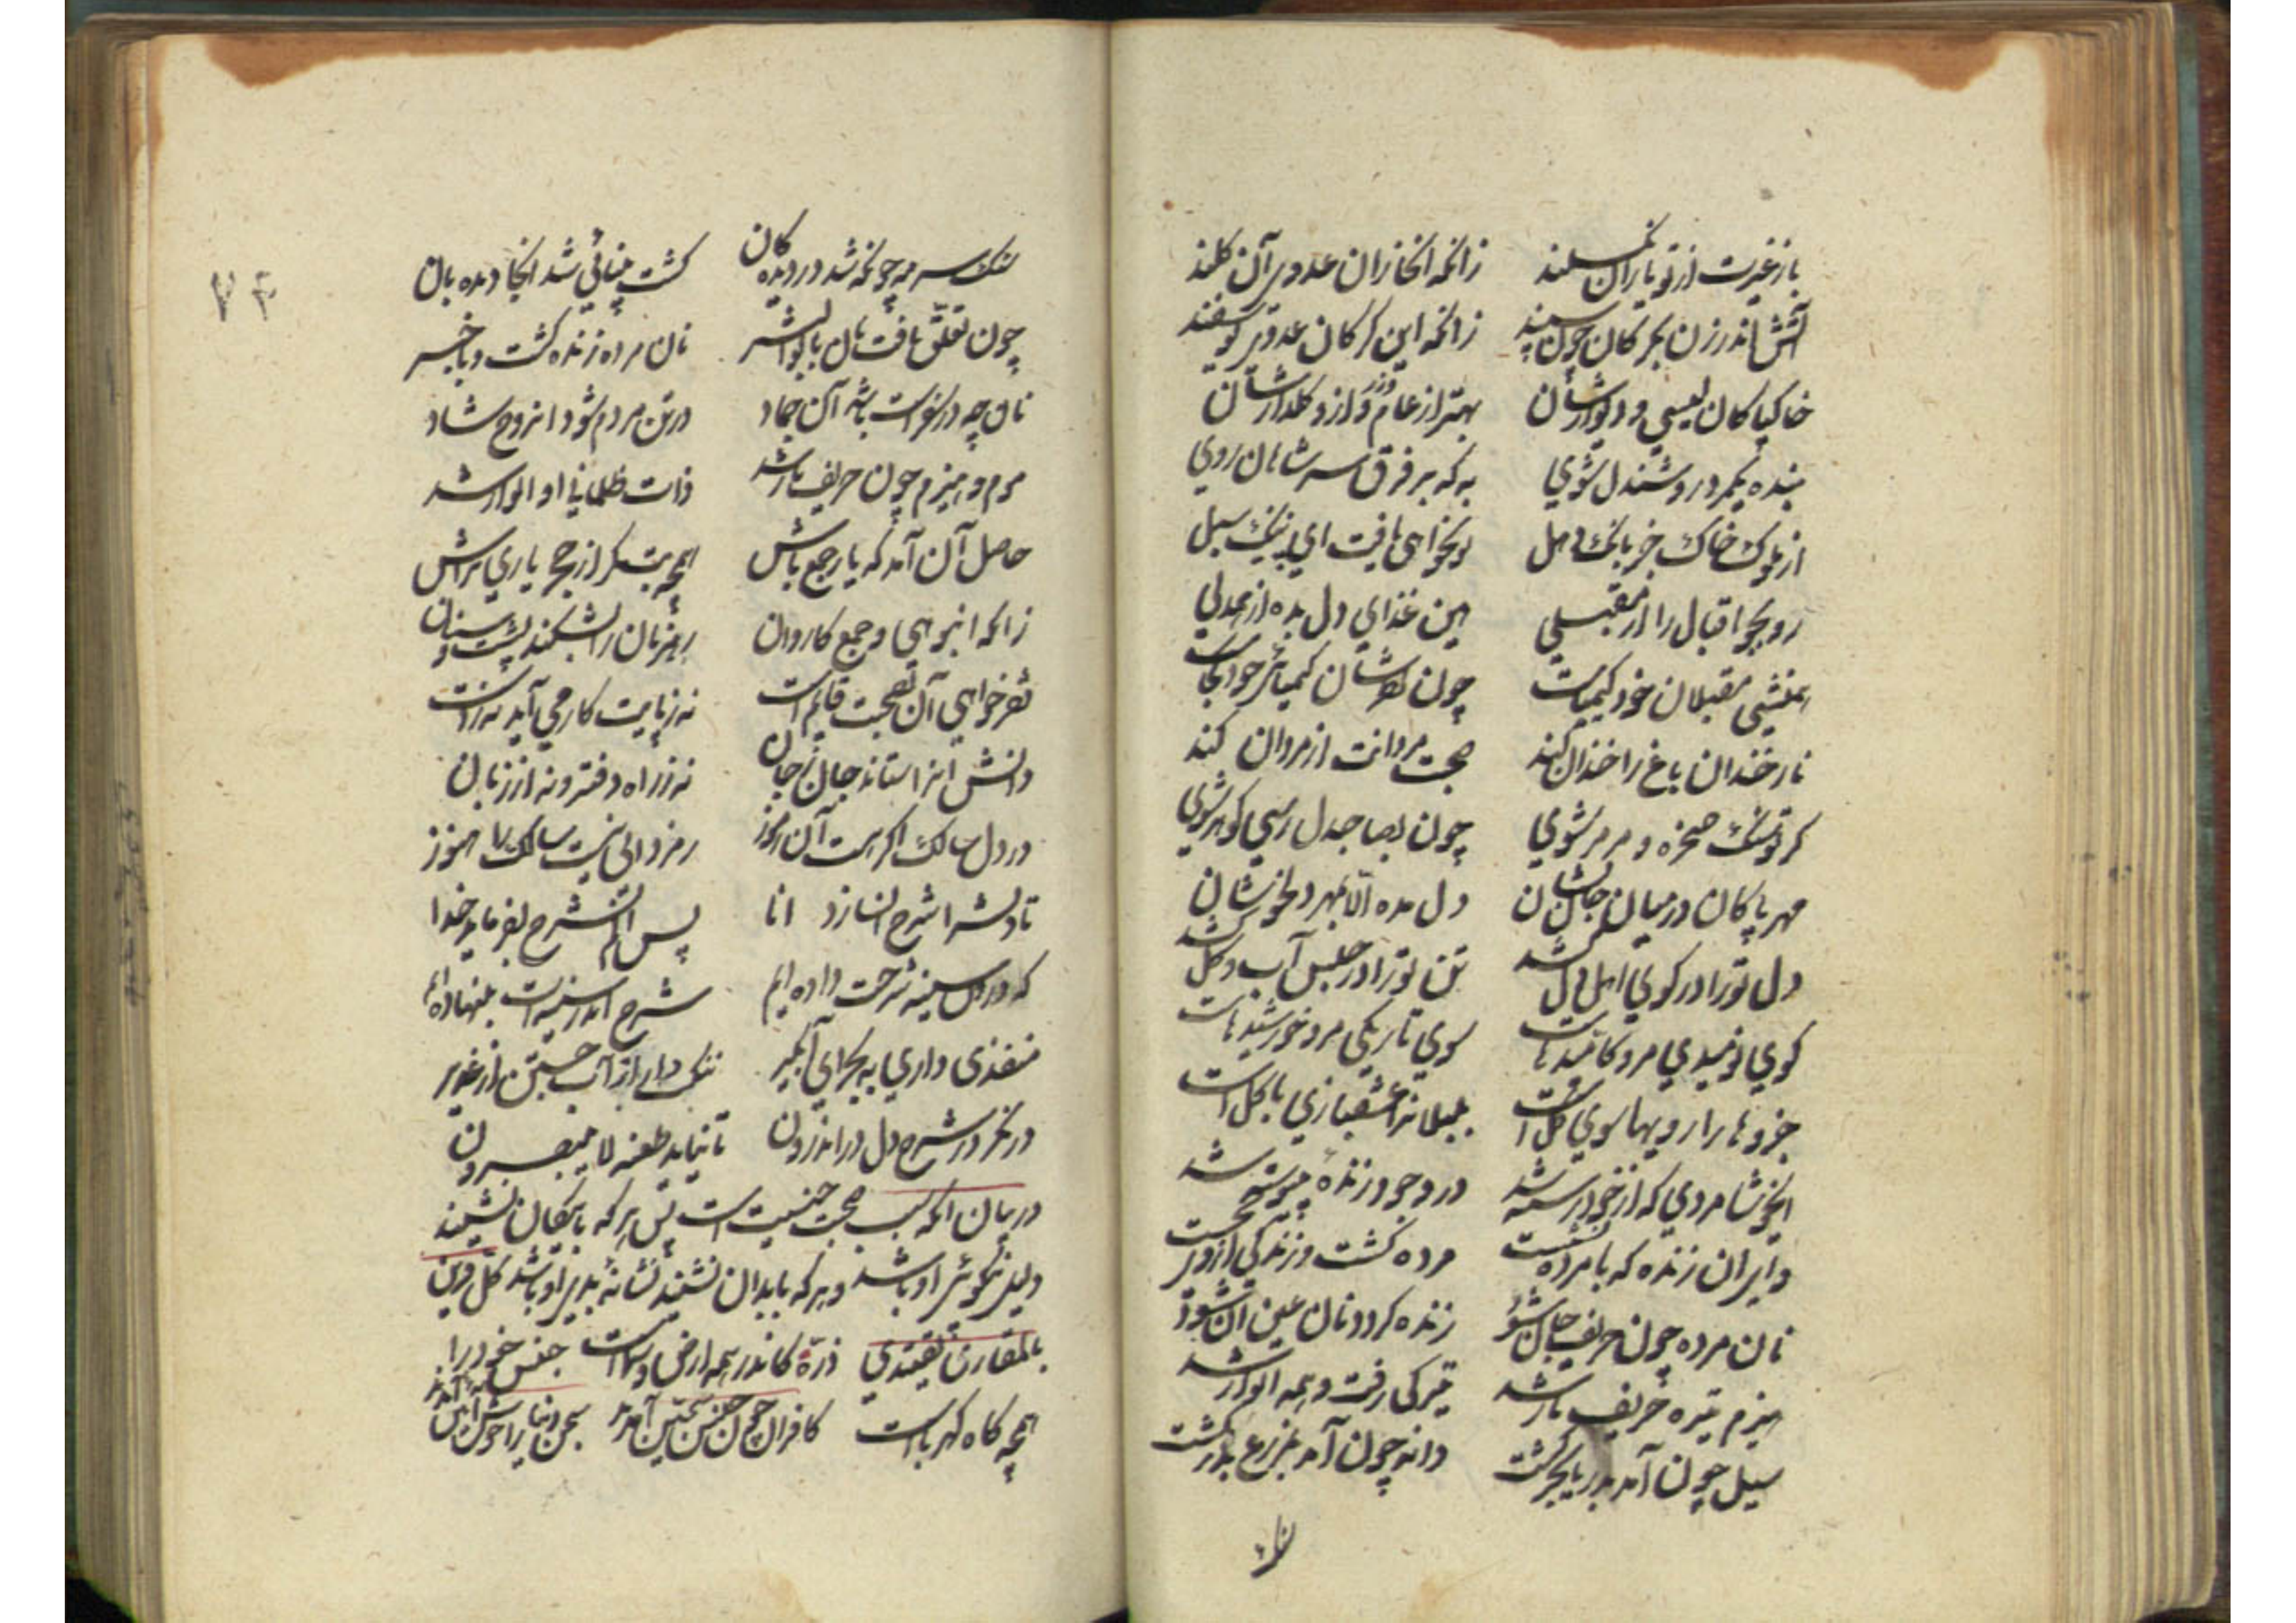 تا ز غیرت از تو یاران نسکلند زانکه انخاران عدوی آن گلند
آتش اندر زن بگرگان چون سپند زانکه این گرگان عدوی یوسفند
خاک پاکان لیسی و دیوارشان بهتر از عام و رز و گلزارشان
بنده یکمرد روشندل شوی به که بر فرق سر شاهان روی
از ملوک خاک جز بانک دهل تو نخواهی یافت ای پیک سبل
رو بجو اقبال را از مقبلی هین غذای دل بده از همدلی
همنشینی مقبلان خود کیمیاست چون نظرشان کیمیائی خود کجاست
نار خندان باغ را خندان کند صحبت مردانت از مردان کند
گر تو سنگ صخره و مرمر شوی چون بصاحبدل رسی گوهر شوی
مهر پاکان در میان جان نشان دل مده الا بمهر دلخوشان
دل تو را در کوی اهل دل کشد تن تو را در حبس آب و گل کشد
کوی نومیدی مرو کامیدهاست سوی تاریکی مرو خورشیدهاست
جزوها را رویها سوی کل است بلبلانرا عشقبازی با گل است
ایخوشا مردی که از خود رسته شد در وجود زنده پیوسته شد
وای آن زنده که با مرده نشست مرده گشت و زندگی از وی بجست
نان مرده چون حریف جان شود زنده گردد نان و عین آن شود
هیزم تیره حریف نار شد تیرگی رفت و همه انوار شد
سیل چون آمد بدریا بحر گشت دانه چون آمد بمزرع گشت
سنگ سرمه چونکه شد در دیده کان گشت بینائی شد انجا دیده بان
چون تعلق یافت نان با بوالبشر نان مرده زنده گشت و باخبر
نان چه در سفره است باشد آن جماد در تن مردم شود او روح شاد
موم و هیزم چون حریف نار شد ذات ظلمانی او انوار شد
حاصل آن آمد که یار جمع باش همچو بتگر از حجر یاری تراش
زانکه انبوهی و جمع کاروان رهزنان را بشکند پشت و سنان
فقر خواهی آن بصحبت قایم است نه زبانت کار می آید نه دست
دانش آنرا ستاند جان ز جان نه ز راه دفتر و نه از زبان
در دل سالک اگر هست آن رموز رمز دانی نیست سالک را هنوز
تا دلش را شرح آن سازد انا پس الم نشرح بفرماید خدا
که درون سینه شرحت داده ایم شرح اندر سینه ات بنهاده ایم
منفذی داری به بحر ای آبگیر ننگ دار از آب جستن از غدیر
در نگر در شرح دل در اندرون تا نیاید طعنه لا یبصرون
در بیان آنکه سبب صحبت جنسیت است پس هر که با نیکان نشیند
دلیل نیکوئی او باشد و هر که با بدان نشیند نشانهٔ بدی او باشد کل قرین
بالمقارن یقتدی ذرهٔ کاندر همه ارض و سماست جنس خود را
همچو کاه کهرباست کافران چون جنس سجین آمدند سجن دنیا را خوش آیین آمدند